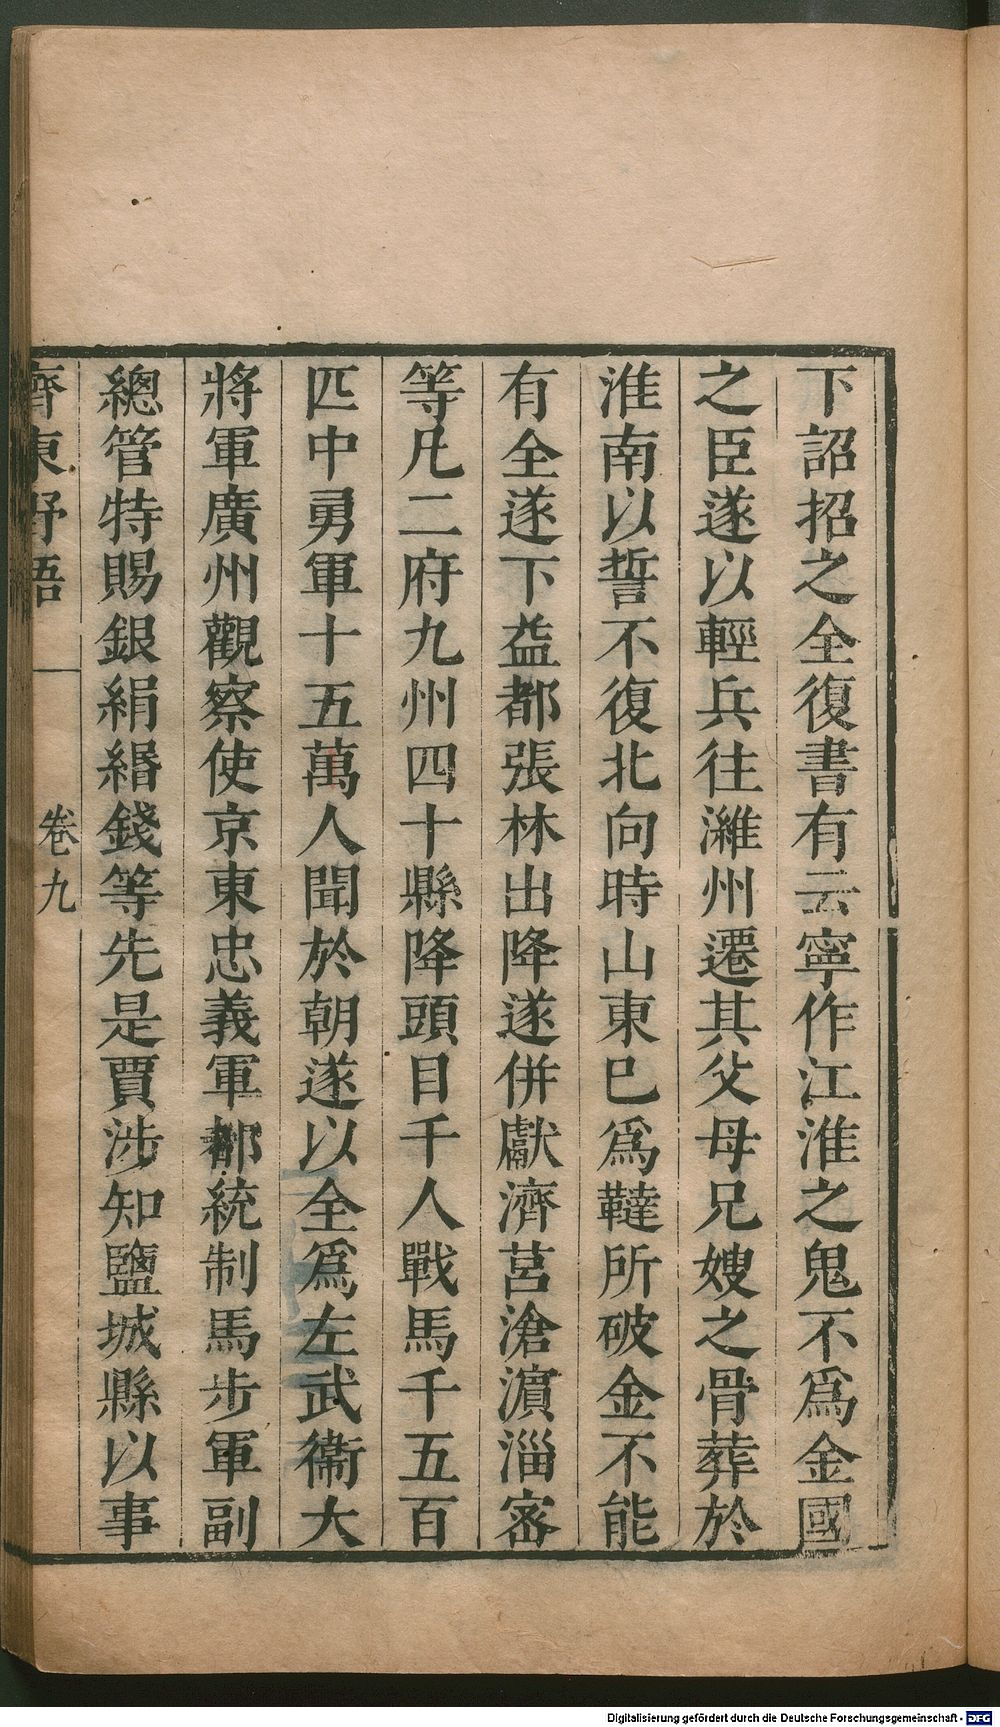 下詔招之全復書有云寧作江淮之鬼不爲金國
之臣遂以輕兵往濰州遷其父母兄嫂之骨葬於
淮南以誓不復北向時山東已爲韃所破金不能
有全遂下益都張林出降遂併獻濟莒滄濵淄密
等凡二府九州四十縣降頭目千人戰馬千五百
匹中勇軍十五萬人聞於朝遂以全爲左武衞大
將軍廣州觀察使京東忠義軍都統制馬步軍副
總管特賜銀絹緡錢等先是賈涉知鹽城縣以事
齊東野語 卷九
Digitalisierung gefördert durch die Deutsche Forschungsgemeinschaft - DFG